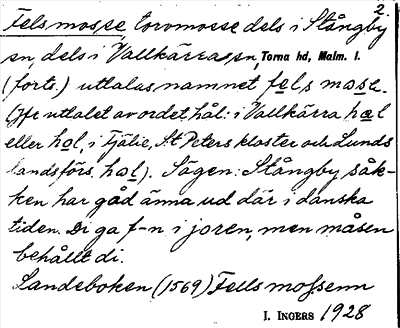 2.
Felsmosse, torvmosse dels i Stångby
sn, dels i Vallkärra sn, Torna hd, Malm. l.
(forts.) uttalas namnet fels mose.
(Jfr uttalet av ordet hål: i Vallkärra hæl
eller hol, i Fjälie, St Peters kloster och Lunds
landsförs. hol). Sägen: Stångby såk-
ken har gåd änna ud där i danska
tiden. Di ga f-n i joren, men måsen
behållt di.
Landeboken (1569) Fells mossenn
J. INGERS 1928